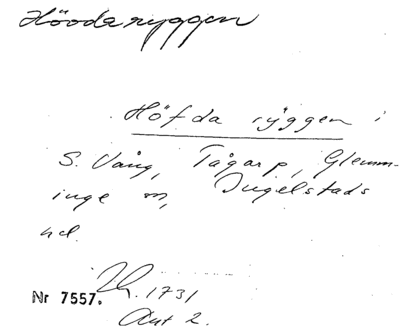 Hövdaryggen
Höfda ryggen i
S. Vång, Tågarp, Glemm-
inge sn, Ingelstads
hd.
Nr 7557. 1731
Akt 2.